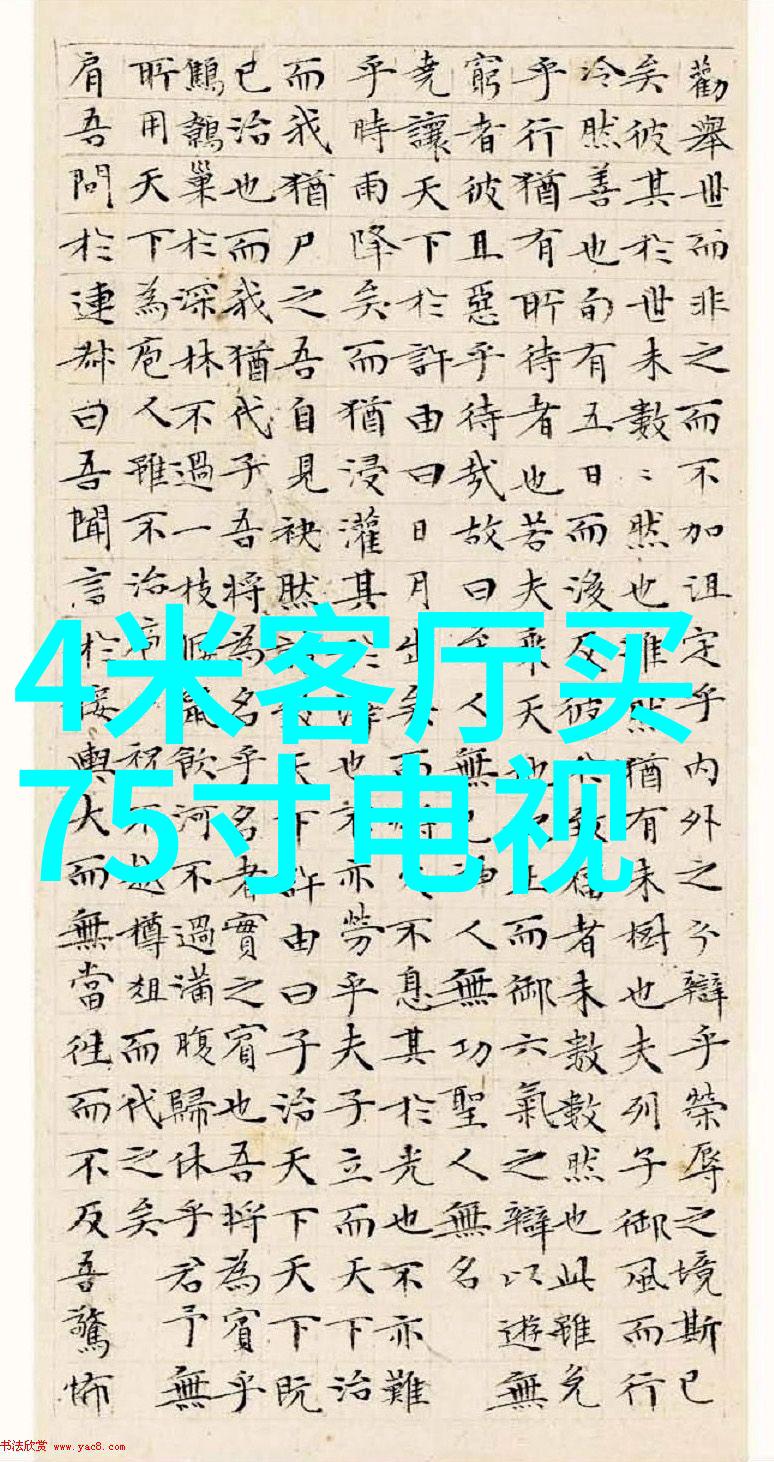 勸舉世而非之而不加沮定乎内外之分辯乎榮辱之境斯已
矣彼其於世未數〻然也雖然猶有未樹也夫列子御風而行
冷然善也旬有五日而後反彼於致福者未數數然也此雖免
乎行猶有所待者也若夫乘天地之正而御六氣之辯以遊無
窮者彼且惡乎待哉故曰至人無己神人無功聖人無名
堯讓天下於許由曰日月出矣而不息其於光也不亦難
乎時雨降矣而猶浸灌其於澤也不亦勞乎夫子立而天下治
而我猶尸之吾自見缺然請天下許由曰子治天下天下既
已治也而我猶代子吾將為名乎名者實之賓也吾將為賓乎
鷦鷯巢於深林不過一枝偃鼠飲河不過滿腹歸休乎君予無
所用天下為庖人雖不治庖祝不越樽俎而代之矣
肩吾問於連叔曰吾聞言於接輿大而無當往而不反吾驚怖
4米客厅买
75寸电视
书法欣赏 www.yac8.com